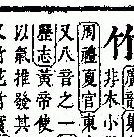 竹
非木小
周禮夏官東
又八音之一
歷志黃帝使
以氣推發其